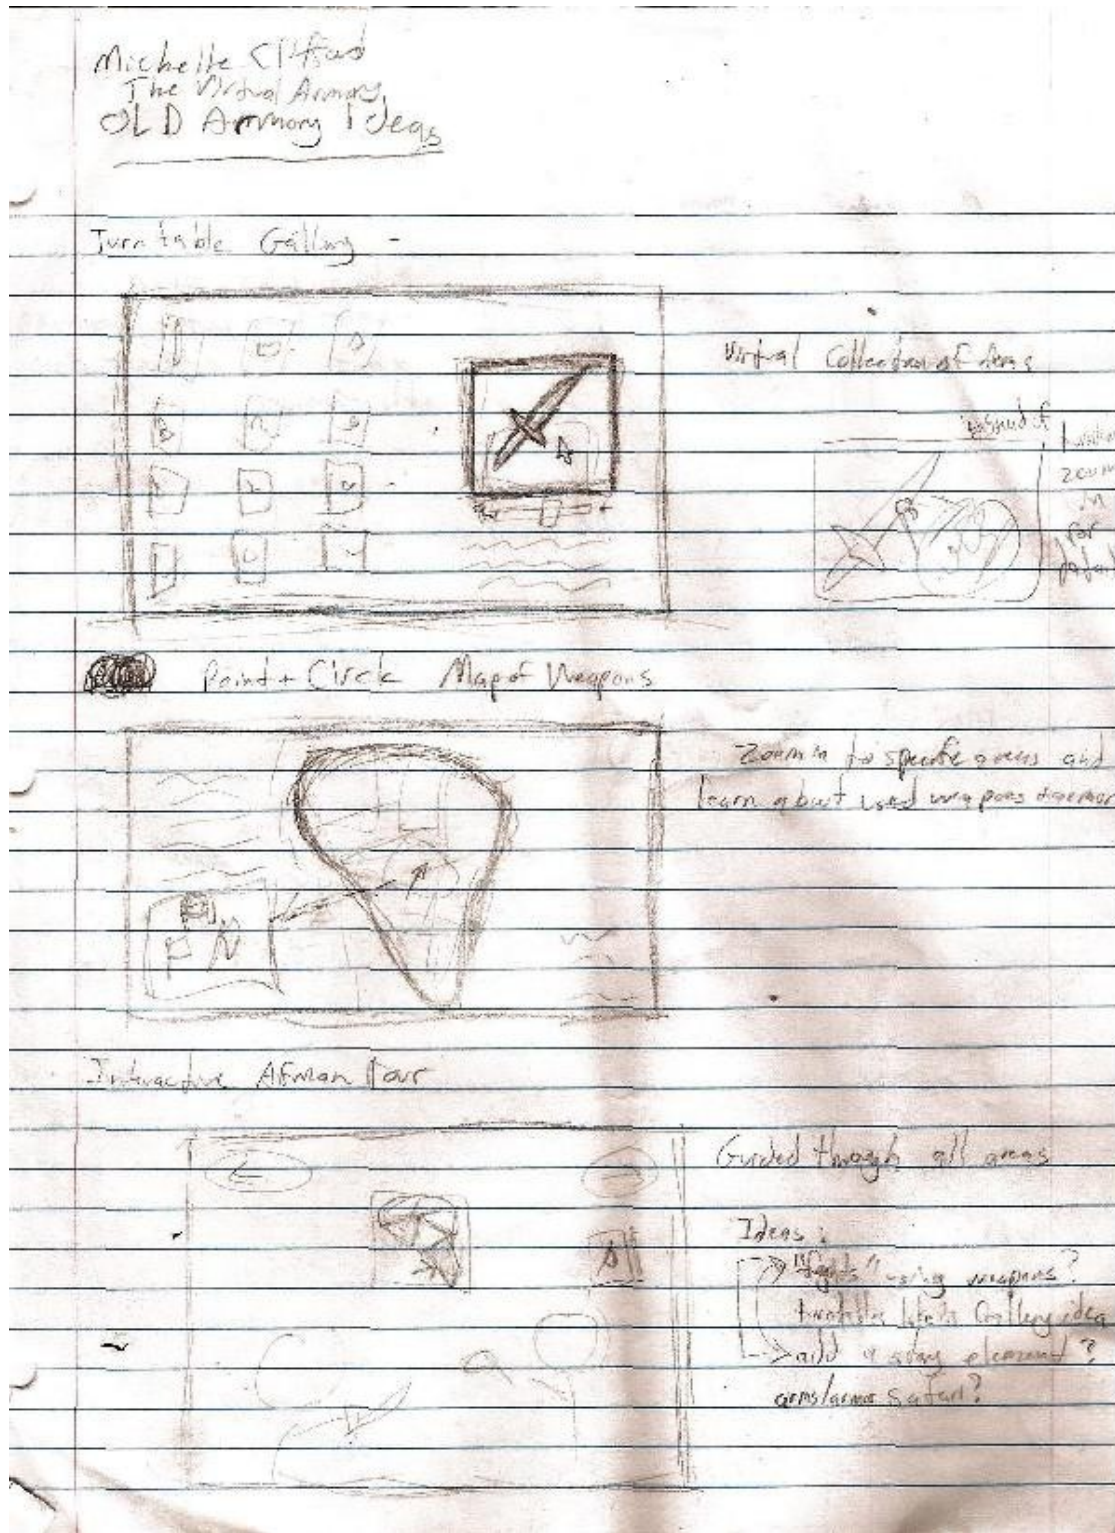 Michelle Clifford
The Virtual Armory
OLD Armory Ideas
Turntable Gallery -
Virtual Collection of items
instead of
zoom
in
for
detail
Point + Circle Map of Weapons
Zoom in to specific areas and
learn about used weapons +armor
Interactive African Tour
Guided through all areas
Ideas:
"fights" using weapons?
Gallery idea
add a story element?
arms/armor safari?